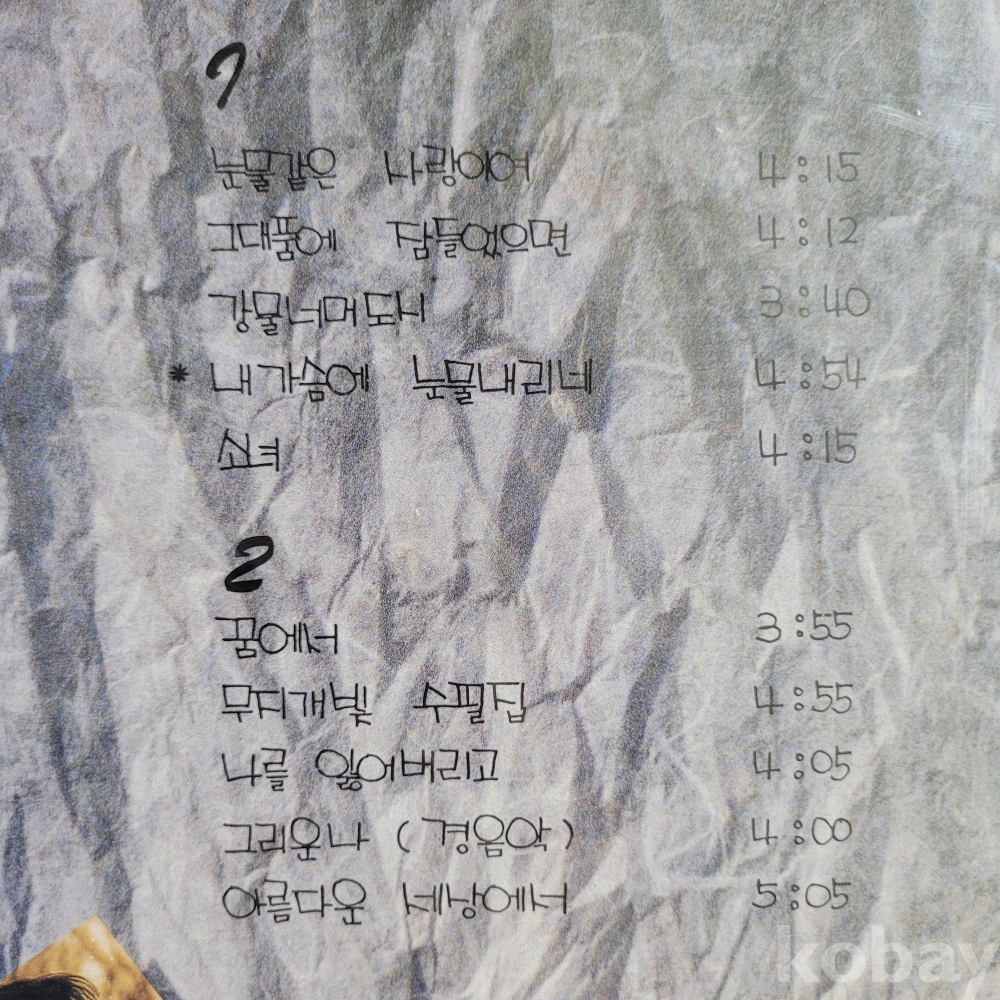 1
눈물같은 사랑이여 4:15
그대품에 잠들었으면 4:12
강물너머도시 3:40
* 내 가슴에 눈물내리네 4:54
소녀 4:15
2
꿈에서 3:55
무지개빛 수필집 4:55
나를 잃어버리고 4:05
그리운 나 (경음악) 4:00
아름다운 세상에서 5:05
kobay